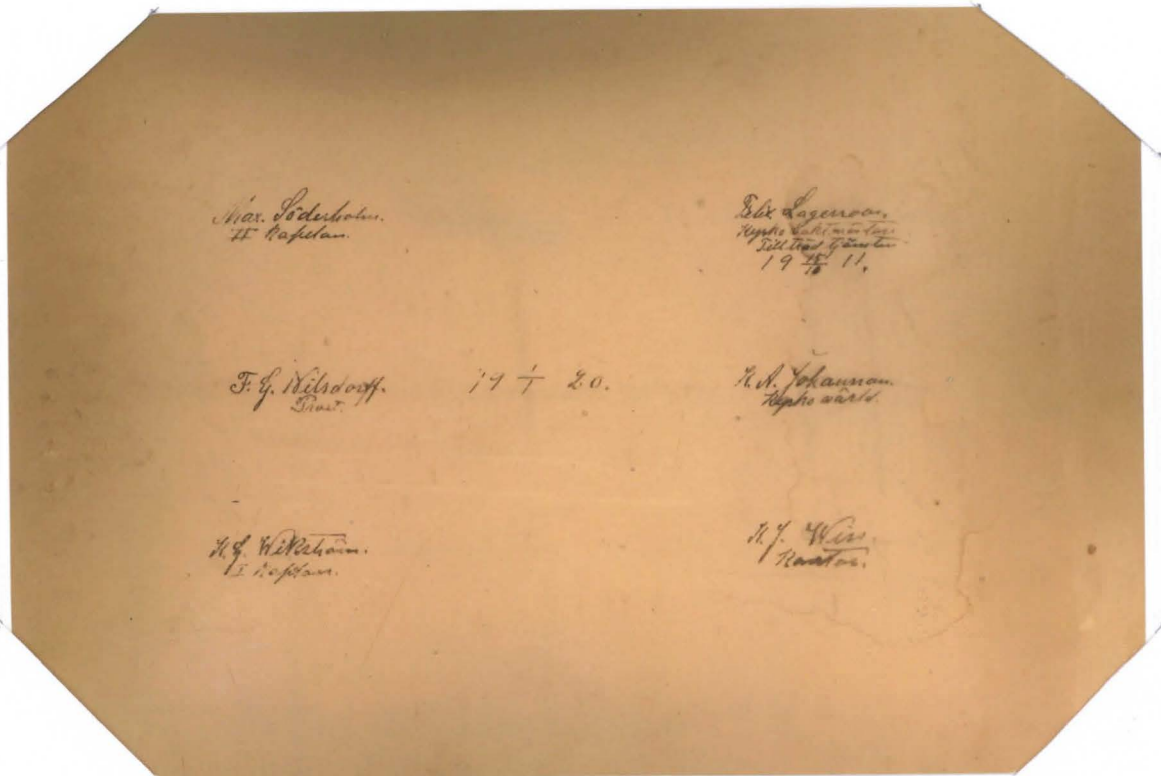 Max. Söderholm.
II Kaplan.
Felix Lagerroos.
Kyrko bokimästare
Tillträd tjänsten
19 15/10 11.
F. G. Hilsdorff.
Prost.
19 1/1 20.
K. A. Johansson.
Kyrko värd.
K. G. Wikström.
I Kaplan.
K. J. Wiss.
Kantor.